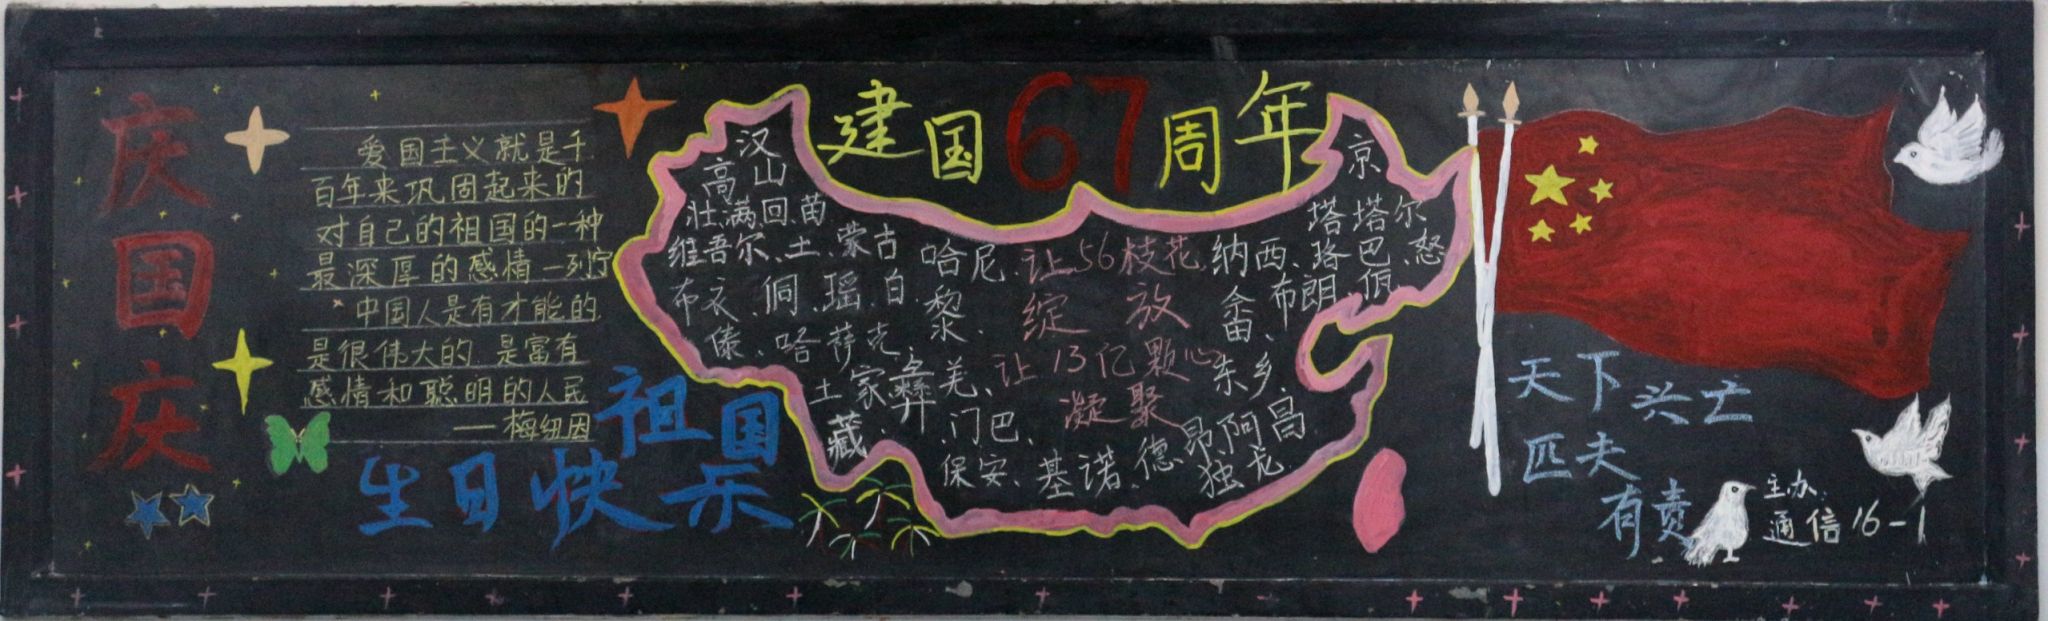 庆国庆
爱国主义就是千
百年来巩固起来的
对自己的祖国的一种
最深厚的感情—列宁
中国人是有才能的
是很伟大的.是富有
感情和聪明的人民
——梅纽因
祖国
生日快乐
建国67周年
汉
高山
壮.满.回.苗
维吾尔.土.蒙古
布衣.侗.瑶.白
傣、哈萨克.
土家
藏.
彝
哈尼.
黎.
羌、
门巴、
保安、基诺.德昂.阿昌.
独龙.
让56枝花
绽放
让13亿颗心
凝聚
京
塔塔尔
纳西、珞巴、怒
畲、布朗.佤
东乡.
天下兴亡
匹夫
有责
主办:
通信16-1